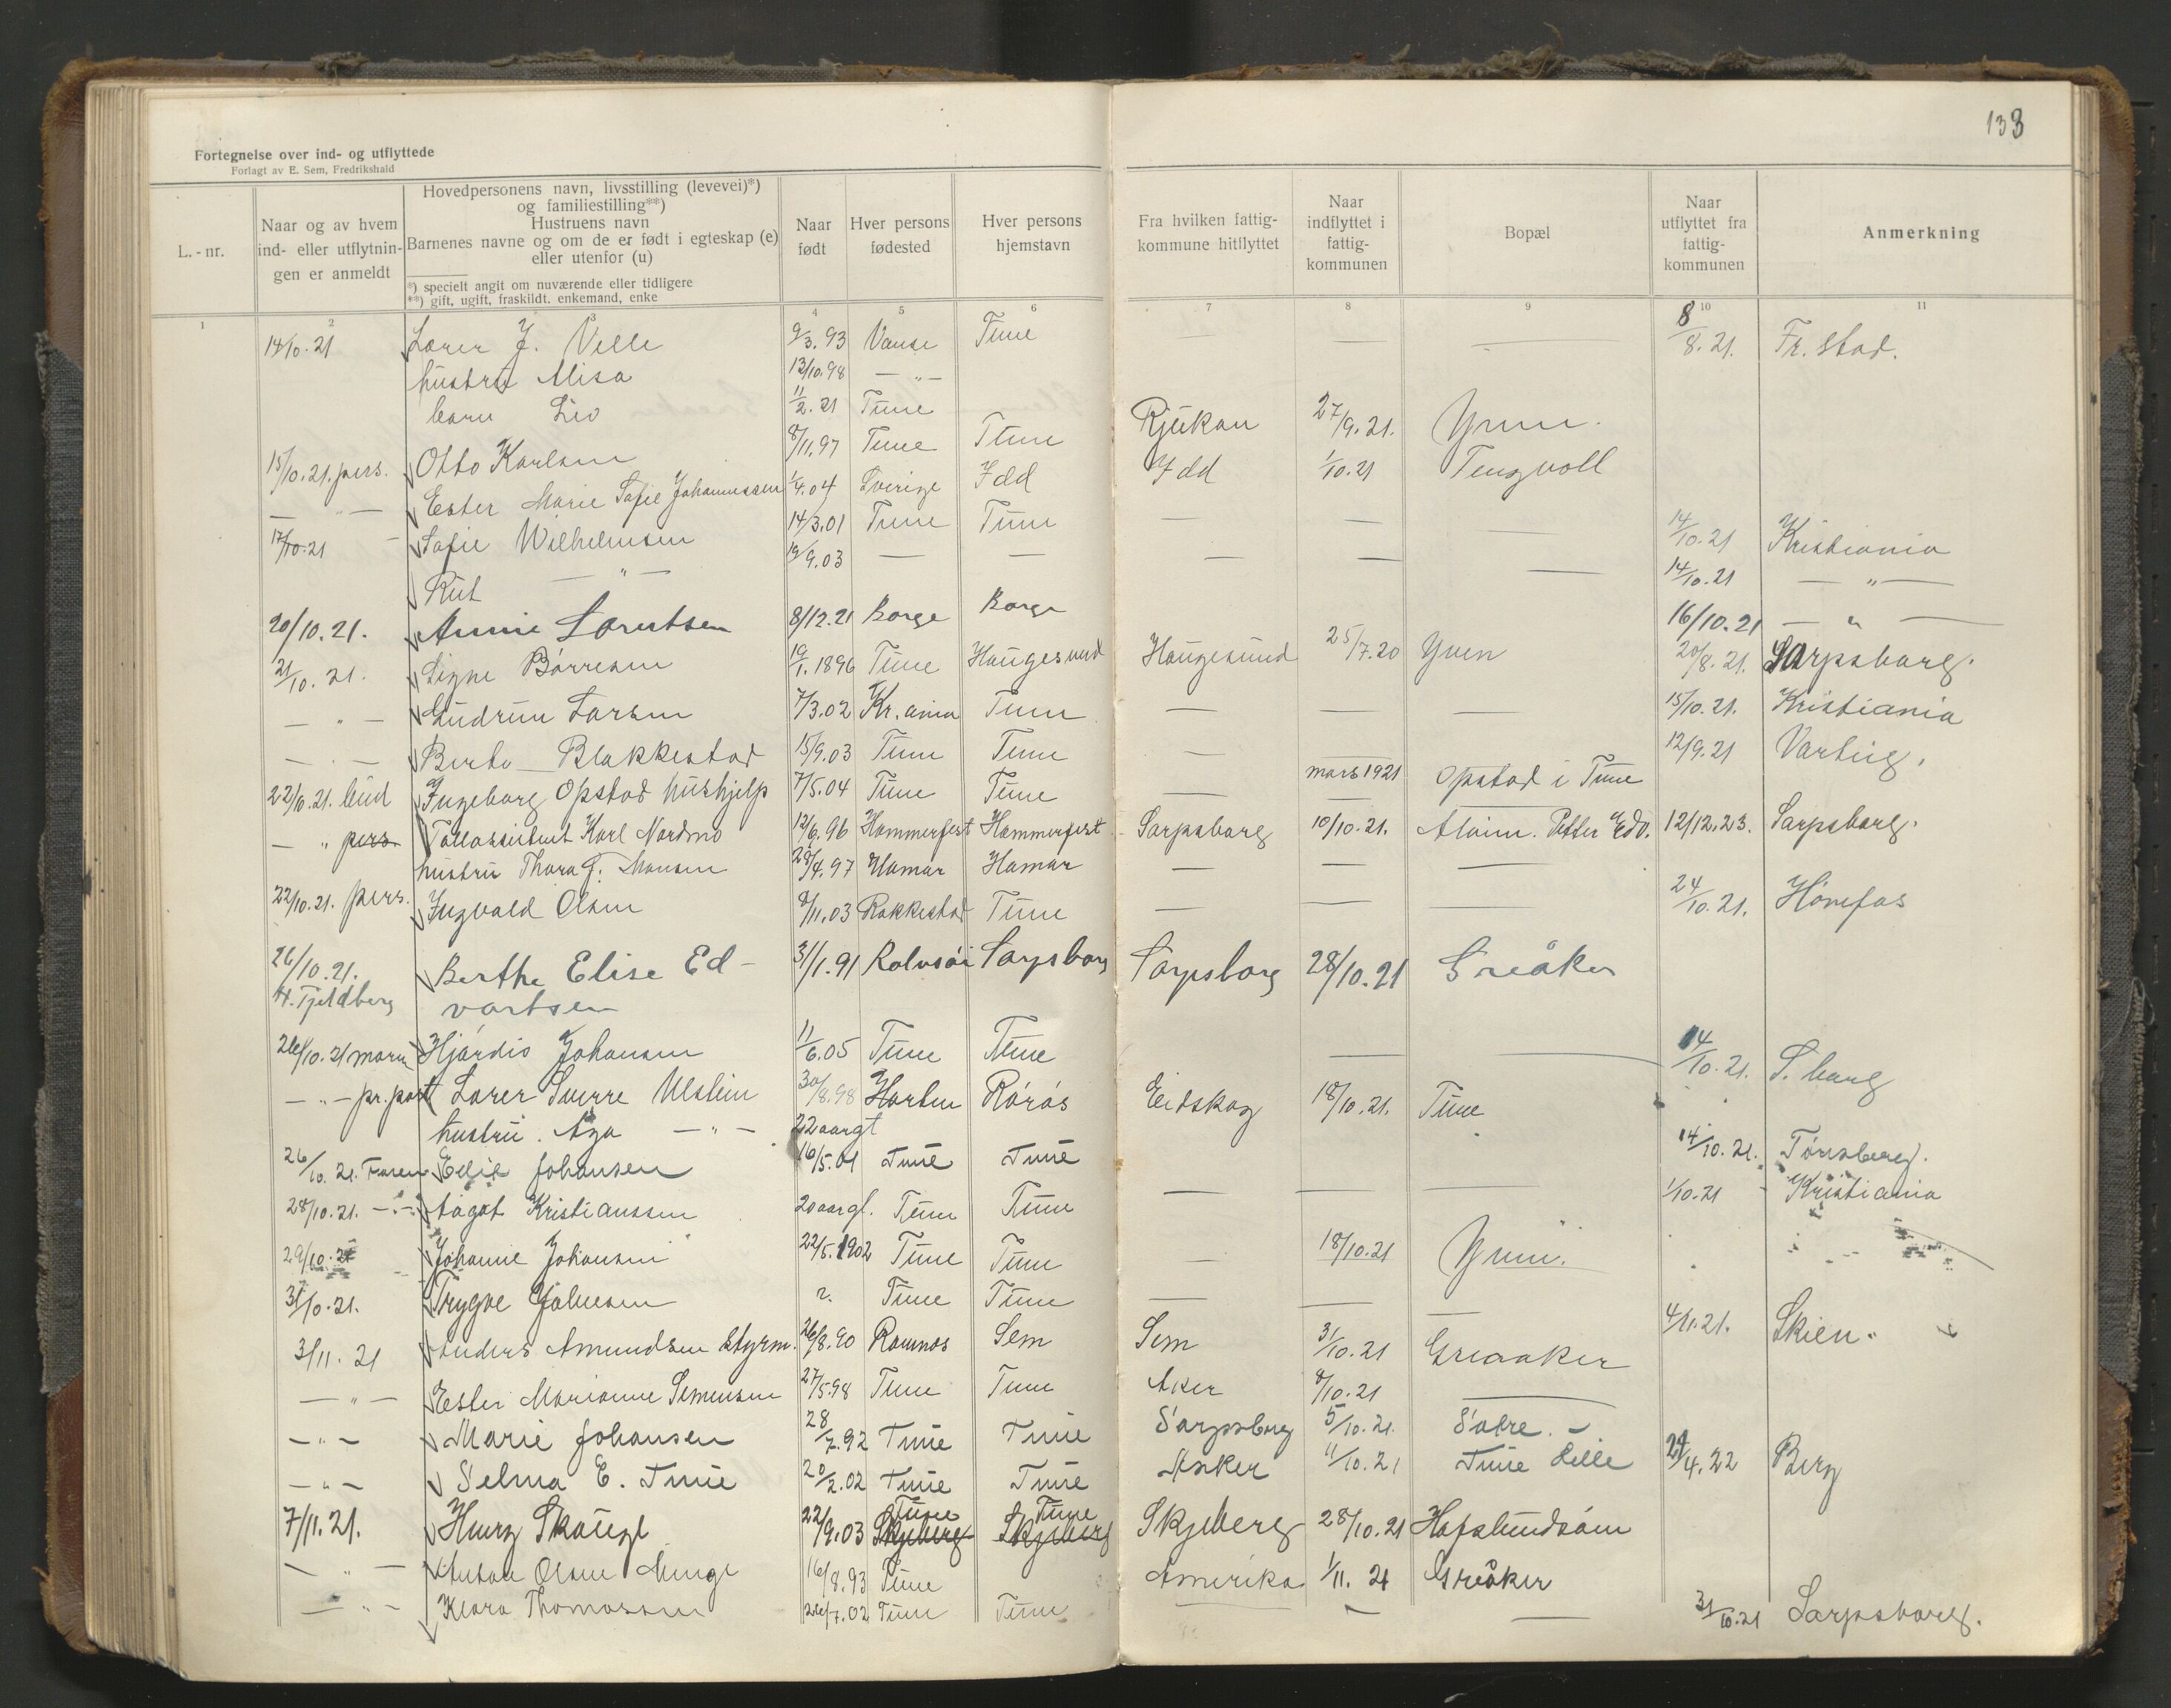 138
Fortegnelse over ind- og utflyttede
Forlagt av E. Sem, Fredrikshald
L.-nr.
Naar og av hvem ind- eller utflytnin- gen er anmeldt
Hovedpersonens navn, livsstilling (levevei)*)
og familiestilling**)
Hustruens navn
Barnenes navne og om de er født i egteskap (e)
eller utenfor (u)
*) specielt angit om nuværende eller tidligere
**) gift, ugift, fraskildt, enkemand, enke
Naar født
Hver persons fødested
Hver persons hjemstavn
Fra hvilken fattig- kommune hitflyttet
Naar indflyttet i fattig- kommunen
Bopæl
Naar utflyttet fra fattig- kommunen
Anmerkning
1 2 3 4 5 6 7 8 9 10 11
14/10.21 Lærer J. Velle 9/3.93 Vanse Tune — — — 8/8.21. Fr.stad.
hustru Alisa 13/10.98 — " —
barn Liv 11/2.21 Tune
15/10.21. pers. Otto Karlsen 8/11.97 Tune Tune Rjukan 27/9.21. Yven.
— " — Ester Marie Sofie Johannessen 1/4.04 Sverige Idd Idd 1/10.21 Tengvoll
17/10.21 Sofie Wilhelmsen 14/3.01 Tune Tune — — — 14/10.21 Kristiania
Rut — " — 19/9.03 — — — — — 14/10.21 — " —
20/10.21. Annie Lorntsen 8/12.21 Borge Borge 16/10.21 — " —
21/10.21. Signe Børresen 19/1.1896 Tune Haugesund Haugesund 25/7.20 Yven 20/8.21. Sarpsborg.
— " — Gudrun Larsen 7/3.02 Kr.ania Tune — — — 15/10.21. Kristiania
— " — Berte Blakkestad 15/9.03 Tune Tune — 12/9.21 Varteig.
22/10.21. bud Ingeborg Opstad hushjelp 7/5.04 Tune Tune — mars 1921 Opstad i Tune
— " pers. Tollassistent Karl Nordmo 12/6.96 Hammerfest Hammerfest Sarpsborg 10/10.21. Alvim. Petter Edv. 12/12.23. Sarpsborg.
hustru Thora J. Monsen 28/4.97 Hamar Hamar — — —
22/10.21. pers. Ingvald Olsen 9/11.03 Rakkestad Tune — — — 24/10.21. Hønefos
26/10.21. H. Tjeldberg Berthe Elise Ed- 31/1.91 Rolvsøi Sarpsborg Sarpsborg 28/10.21 Greåker
vartsen
26/10.21 Hjørdis Johansen 11/6.05 Tune Tune — — 14/10.21. S.borg
— " — pr. post Lærer Sverre Ulslien 30/8.98 Horten Rørås Eidskog 18/10.21. Tune
hustru. Aga — " — 22 aargl
26/10.21. Faren Edie Johansen 16/5.01 Tune Tune 14/10.21. Tønsberg.
28/10.21. — " — Aagot Kristianssen 20 aargl. Tune Tune — — — 1/10.21 Kristiania
29/10.21 Johanne Johansen 22/5.1902 Tune Tune — 18/10.21 Yven.
31/10.21. Trygve Johnesen ?. Tune Tune — — — 4/11.21. Skien.
3/11.21 Anders Amundsen Styrm. 26/8.90 Ramnes Sem Sem 31/10.21 Greaaker
— " — Ester Marianne Semensen 27/5.98 Tune Tune Aker 8/10.21 —
— " — Marie Johansen 28/7.92 Tune Tune Sarpsborg 5/10.21. Sætre. —
— " — Selma E. Tune 20/2.02 Tune Tune Asker 11/10.21 Tune Lille 24/4.22 Berg
7/11.21. Henry Skauge 22/9.03 Skjeberg Tune Skjeberg Tune Skjeberg 28/10.21 Hafslundsøen
— " — Anton Olsen Minge 16/8.93 Tune Amerika 1/11.21 Greåker
— " — Klara Thomassen 26/7.02 Tune Tune — — — 31/10.21 Sarpsborg.